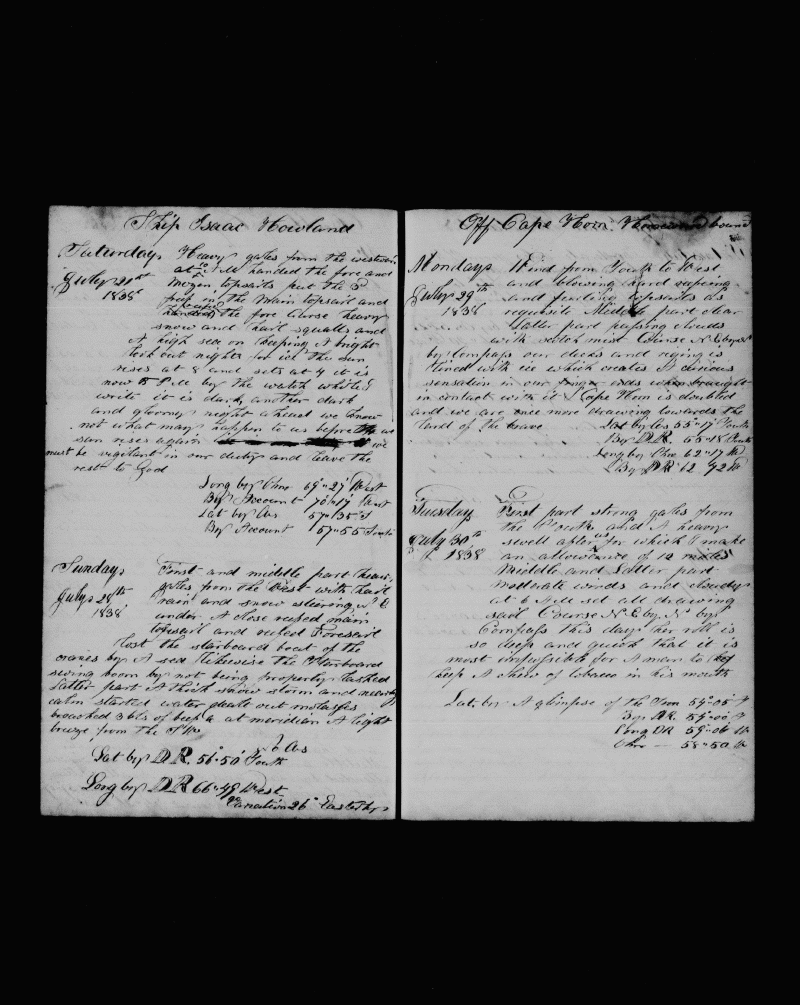 Ship Isaac Howland
Saturday Heavy gales from the westward
at 10 P.M handed the fore and
July 27th mizen topsails put the 3d
1838 reef in the main topsail and
reefed the fore Course heavy
snow and hail squalls and
A high sea on Keeping A bright
look out nights for ice the sun
rises at 8 and sets at 4 it is
now 8 P.M by the watch while I
write it is dark another dark
and gloomy night ahead we know
not what may happen to us before the
sun rises again we
must be vigilant in our duty and leave the
rest to God
Long by Chro 69"27' West
By Account 70"17' West
Lat by Obs 57"35' S
By Account 57"55 South
Sunday First and middle part heavy
gales from the West with hail
July 28th rain and snow steering
1838 under A close reefed main
topsail and reefed Foresail
lost the starboard boat off the
cranes by A sea likewise the
swing boom by not being properly lashed
Latter part A thick snow storm and nearly
calm started water dealt out molasses
broached 3 bls of beef & at meridian A light
breeze from the
no Obs
Lat by D.R. 56"50' South
Long by D.R 66"49 West
Variation 26° Easterly
Off Cape Horn Homeward bound
Monday Wind from South to West
and blowing hard reefing
July 29th and furling topsails as
1838 requisite Middle part clear
Latter part passing clouds
with scotch mist Course N.E. by
by Compass our decks and riging is
lined with ice which creates A curious
sensation in our finger ends when braught
in contact with it Cape Horn is doubled
and we are once more drawing towards the
land of the brave Lat by Obs 55"17' South
By D.R. 55"18 South
Long by Chro 62"17 W
By D.R 62"42 W
Tuesday First part strong gales from
the South and A heavy
July 30th swell after us for which I make
1838 an allowance of 12 miles
Middle and Latter part
moderate winds and cloudy
at 6 A.M set all drawing
sail Course N.E. by N by
Compass this day her roll is
so deep and quick that it is
most impossible for A man to
keep A chew of tobacco in his mouth
Lat. by A glimpse of the Sun 54"05' S
By D.R. 54"00' S
Long D.R 59"06 W
Chro — 58"50 W